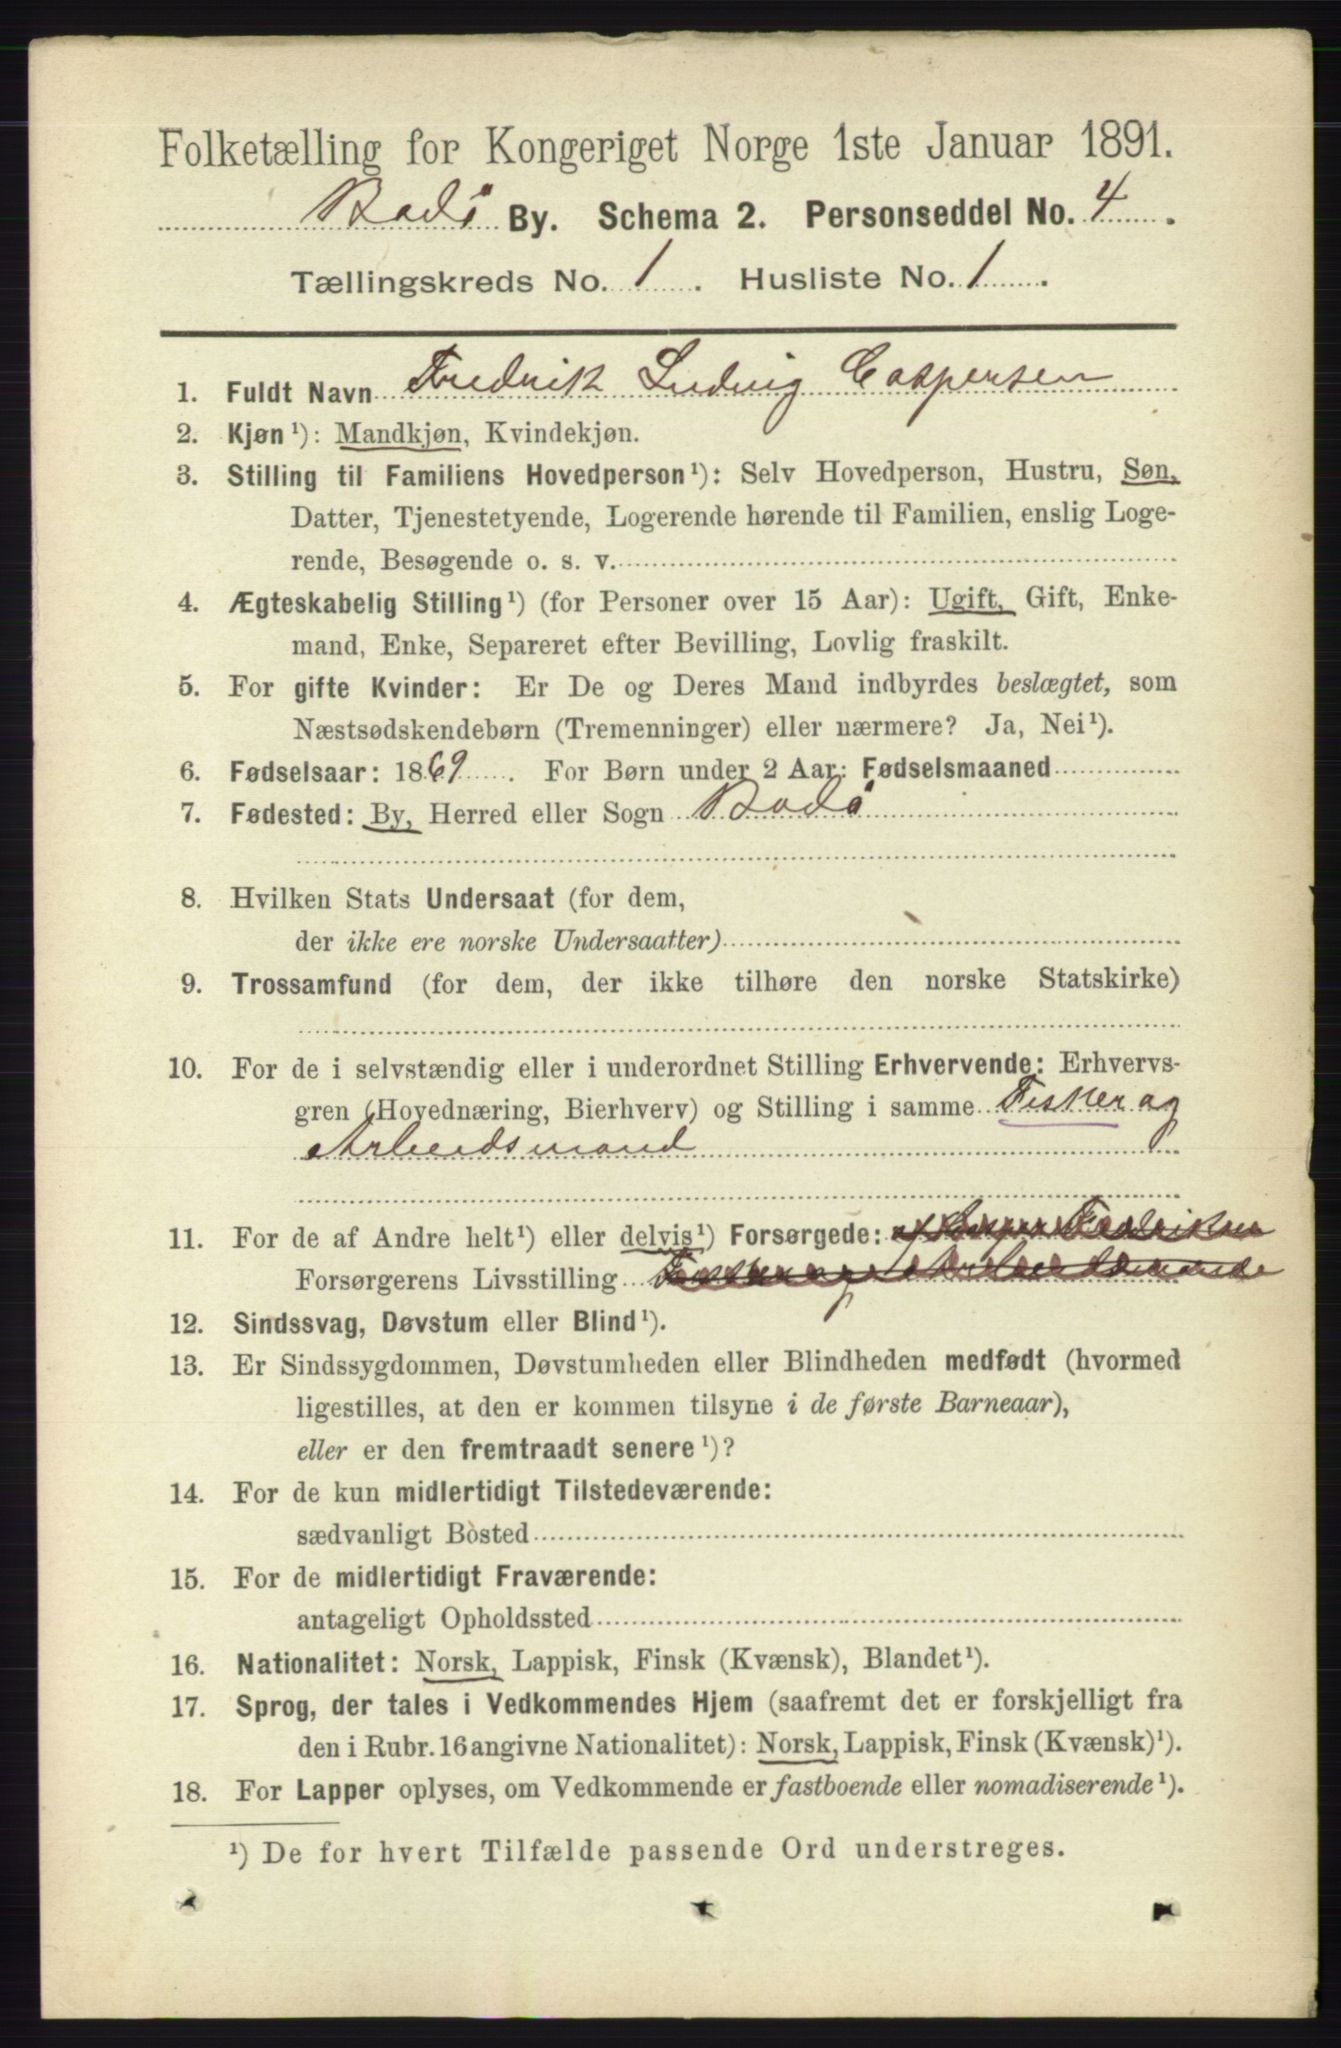 Folketælling for Kongeriget Norge 1ste Januar 1891.
Bodö By. Schema 2. Personseddel No. 4.
Tællingskreds No. 1. Husliste No. 1.
1. Fuldt Navn Fredrik Ludvig Caspersen
2. Kjøn¹): Mandkjøn, Kvindekjøn.
3. Stilling til Familiens Hovedperson¹): Selv Hovedperson, Hustru, Søn,
Datter, Tjenestetyende, Logerende hørende til Familien, enslig Loge-
rende, Besøgende o. s. v.
4. Ægteskabelig Stilling¹) (for Personer over 15 Aar): Ugift, Gift, Enke-
mand, Enke, Separeret efter Bevilling, Lovlig fraskilt.
5. For gifte Kvinder: Er De og Deres Mand indbyrdes beslægtet, som
Næstsødskendebørn (Tremenninger) eller nærmere? Ja, Nei¹).
6. Fødselsaar: 1869. For Børn under 2 Aar: Fødselsmaaned
7. Fødested: By, Herred eller Sogn Bodö
8. Hvilken Stats Undersaat (for dem,
der ikke ere norske Undersaatter)
9. Trossamfund (for dem, der ikke tilhøre den norske Statskirke)
10. For de i selvstændig eller i underordnet Stilling Erhvervende: Erhvervs-
gren (Hovednæring, Bierhverv) og Stilling i samme Fisker og
Arbeidsmand
11. For de af Andre helt¹) eller delvis¹) Forsørgede:
Forsørgerens Livsstilling
12. Sindssvag, Døvstum eller Blind¹).
13. Er Sindssygdommen, Døvstumheden eller Blindheden medfødt (hvormed
ligestilles, at den er kommen tilsyne i de første Barneaar),
eller er den fremtraadt senere¹)?
14. For de kun midlertidigt Tilstedeværende:
sædvanligt Bosted
15. For de midlertidigt Fraværende:
antageligt Opholdssted
16. Nationalitet: Norsk, Lappisk, Finsk (Kvænsk), Blandet¹).
17. Sprog, der tales i Vedkommendes Hjem (saafremt det er forskjelligt fra
den i Rubr. 16 angivne Nationalitet): Norsk, Lappisk, Finsk (Kvænsk)¹).
18. For Lapper oplyses, om Vedkommende er fastboende eller nomadiserende¹).
¹) De for hvert Tilfælde passende Ord understreges.